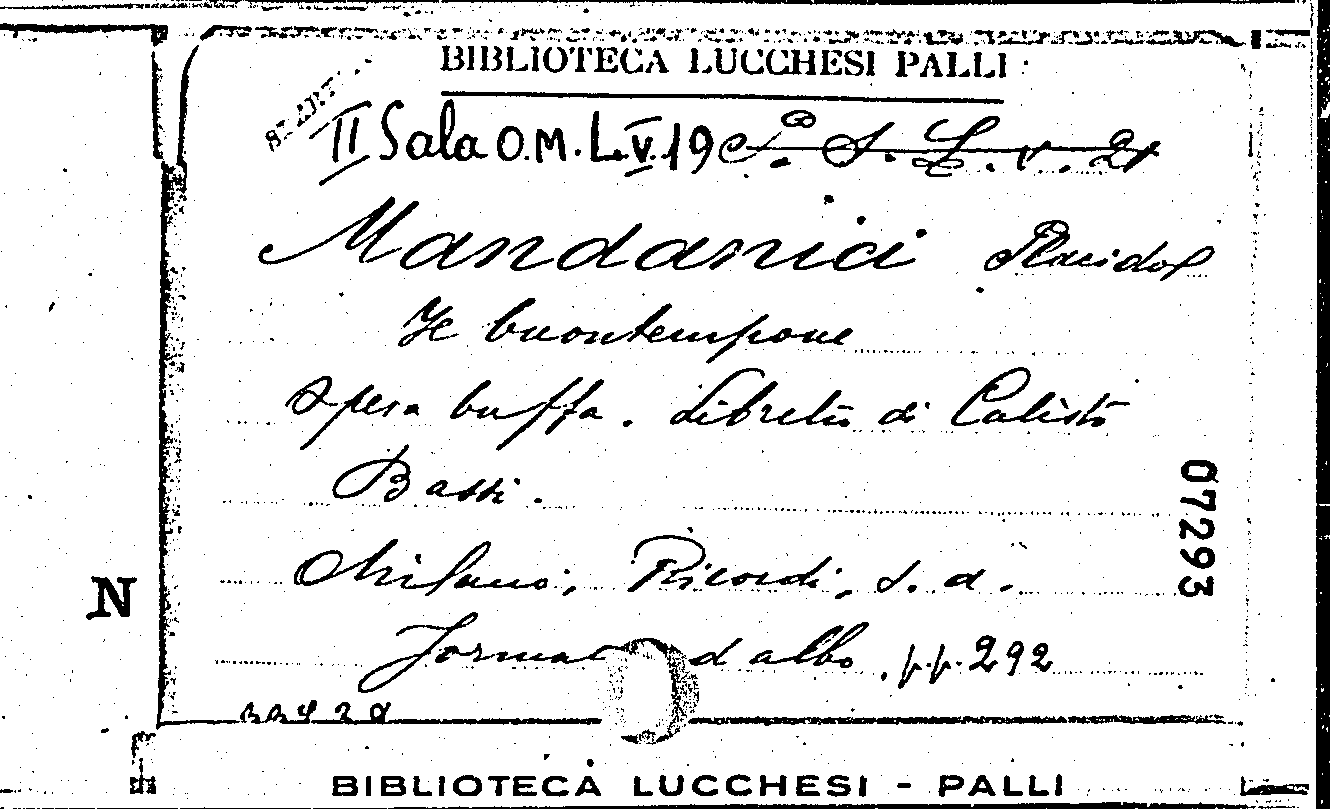 BIBLIOTECA LUCCHESI PALLI
II Sala O.M.L.V.19 S. L. v. 21
Mandanici Placido
Il buontempone
Opera buffa. Libretto di Calisto
Bassi.
Milano, Ricordi, s. d.
Format d'albo, pp. 292
07293
N
BIBLIOTECA LUCCHESI - PALLI